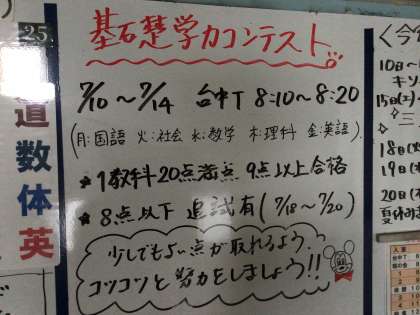 基礎学力コンテスト
7/10～7/14 台中T 8:10～8:20
(月:国語 火:社会 水:数学 木:理科 金:英語)
★1教科20点満点 9点以上合格
★8点以下 追試有(7/18～7/20)
少しでもよい点が取れるよう、
コツコツと努力をしましょう!!
25
道
数
体
英
10日
15日(土)
18日(火
19日(水
20日(木
夏休み